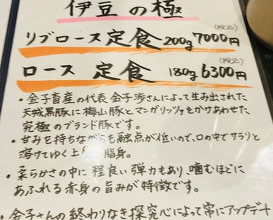 伊豆の極
(税込)
リブロース定食 200g 7000円
(税込)
ロース 定食 180g 6300円
・金子畜産の代表 金子さんによって生み出された
天城黒豚に梅山豚とマンガリッツァをかけあわせた
究極のブランド豚です。
・甘みを持ちながらも融点が低いので、口の中でサラリと
溶けてゆく上 脂身。
・柔らかさの中に程良い弾力もあり、噛むほどに
あふれる赤身の旨みが特徴です。
・金子さんの終わりなき探究心によって常にアップデー